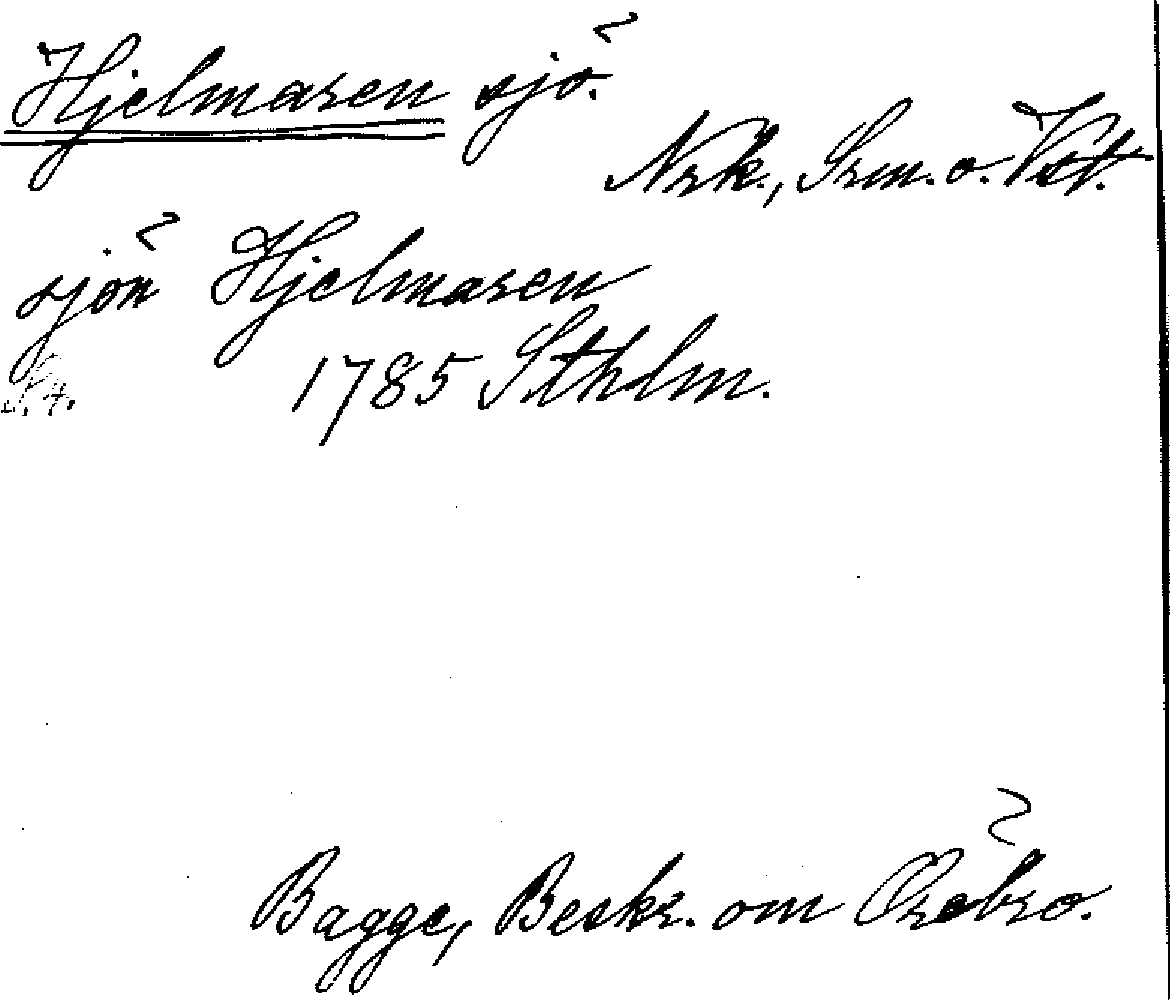 Hjelmaren sjö.
Nrk., Srm. o. Vstl.
sjön Hjelmaren
1785 Sthlm.
Bagge, Beskr. om Örebro.